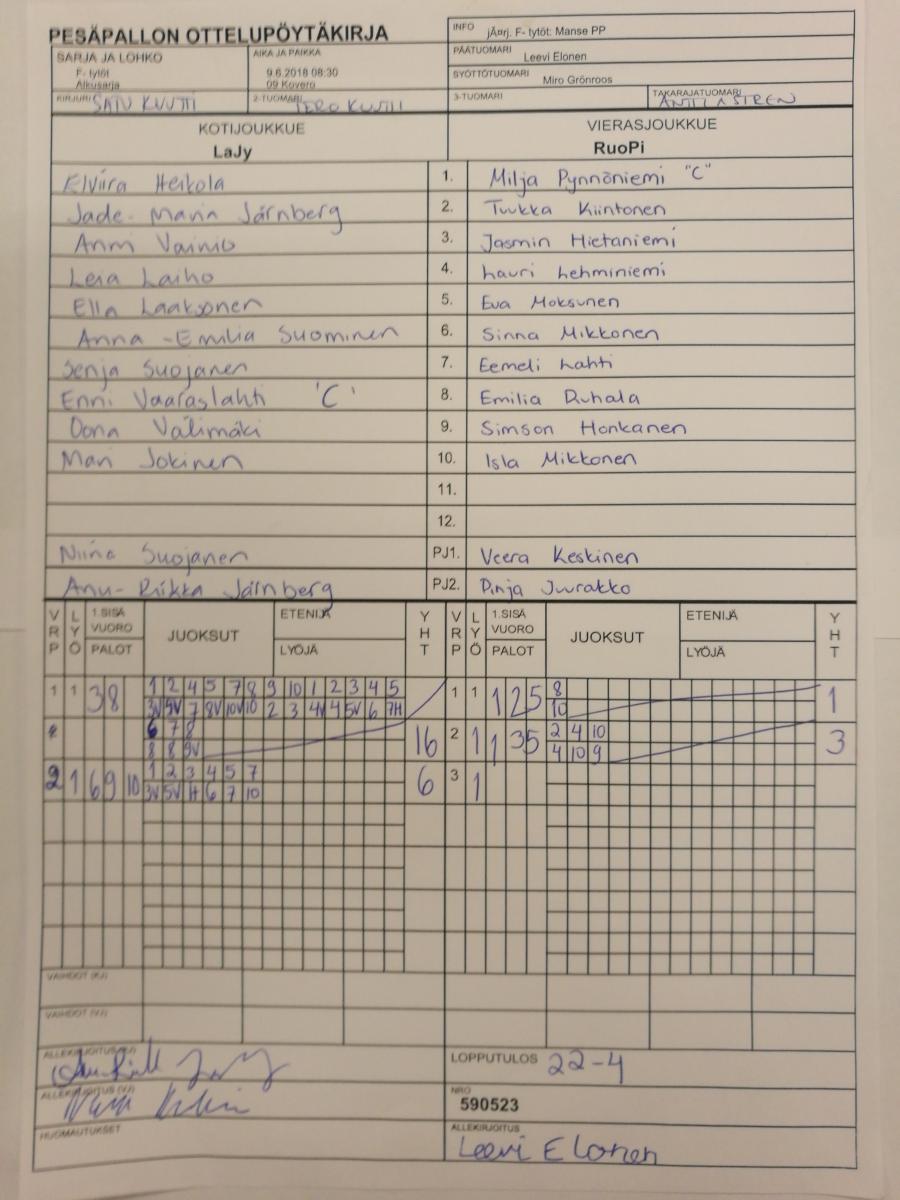 PESÄPALLON OTTELUPÖYTÄKIRJA
INFO jÄ¤rj. F- tytöt: Manse PP
PÄÄTUOMARI Leevi Elonen
SARJA JA LOHKO
F- tytöt
Alkusarja
AIKA JA PAIKKA
9.6.2018 08:30
09 Kovero
SYÖTTÖTUOMARI Miro Grönroos
KIRJURI SATU KUUTTI
2-TUOMARI TERO KUUTTI
3-TUOMARI
TAKARAJATUOMARI ANTTI ASTREN
KOTIJOUKKUE
LaJy
VIERASJOUKKUE
RuoPi
Elviira Heikola 1. Milja Pynnöniemi "C"
Jade-Maria Järnberg 2. Tuukka Kiintonen
Anni Vainio 3. Jasmin Hietaniemi
Leia Laiho 4. Lauri Lehminiemi
Ella Laaksonen 5. Eva Moksunen
Anna-Emilia Suominen 6. Sinna Mikkonen
Senja Suojanen 7. Eemeli Lahti
Enni Vaaraslahti 'C' 8. Emilia Ruhala
Oona Välimäki 9. Simson Honkanen
Mari Jokinen 10. Isla Mikkonen
11.
12.
Niina Suojanen PJ1. Veera Keskinen
Anu-Riikka Järnberg PJ2. Pinja Juurakko
VRP LYÖ 1.SISÄ VUORO PALOT JUOKSUT ETENIJÄ LYÖJÄ YHT VRP LYÖ 1.SISÄ VUORO PALOT JUOKSUT ETENIJÄ LYÖJÄ YHT
1 1 3 8 1 2 4 5 7 8 9 10 1 2 3 4 5 1 1 1 2 5 8 1
3V 5V 7 8V 10V 10 2 3 4V 4 5V 6 7H 10
6 7 8 16 2 1 1 3 5 2 4 10 3
8 8 9V 4 10 9
2 1 6 9 10 1 2 3 4 5 7 6 3 1
3V 5V H 6 7 10
VAIHDOT (KJ)
VAIHDOT (VJ)
ALLEKIRJOITUS (KJ)
LOPPUTULOS 22-4
ALLEKIRJOITUS (VJ)
NRO
590523
HUOMAUTUKSET
ALLEKIRJOITUS
Leevi Elonen